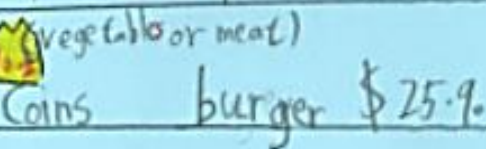 (vegetable or meat)
Coins burger $25.9.